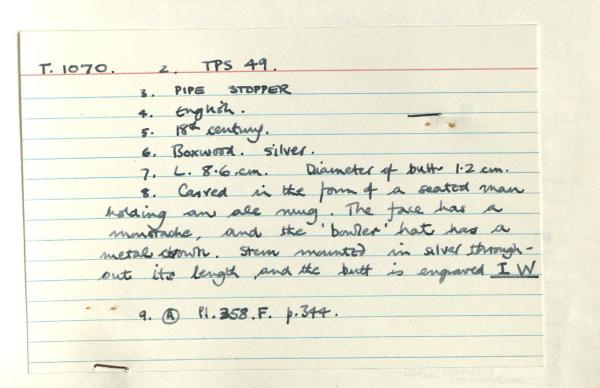 T. 1070. 2. TPS 49.
3. PIPE STOPPER
4. English.
5. 18th century.
6. Boxwood. Silver.
7. L. 8.6. cm. Diameter of butt 1.2 cm.
8. Carved in the form of a seated man
holding an ale mug. The face has a
moustache, and the 'bowler' hat has a
metal crown. Stem mounted in silver through-
out its length and the butt is engraved I W
9. Ⓐ Pl. 358. F. p. 344.